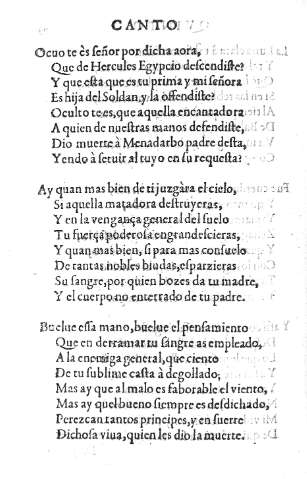 CANTO
Ocuo te ès señor por dicha aora,
Que de Hercules Egypcio descendiste?
Y que esta que es tu prima y mi señora
Es hija del Soldan, y la offendiste?
Oculto te es, que aquella encantadora
A quien de nuestras manos defendiste,
Dio muerte à Menadarbo padre desta,
Yendo à seruir al tuyo en su requesta?
Ay quan mas bien de ti juzgàra el cielo,
Si aquella matadora destruyeras,
Y en la vengança general del suelo
Tu fuerça poderosa engrandescieras,
Y quan mas bien, si para mas consuelo
De tantas nobles biudas, esparzieras
Su sangre, por quien bozes da tu madre,
Y el cuerpo no enterrado de tu padre.
Buelue essa mano, buelue el pensamiento
Que en derramar tu sangre as empleado,
A la enemiga general, que ciento
De tu sublime casta à degollado;
Mas ay que al malo es faborable el viento,
Mas ay que el bueno siempre es desdichado,
Perezcan tantos principes, y en suerte
Dichosa viua, quien les dio la muerte.